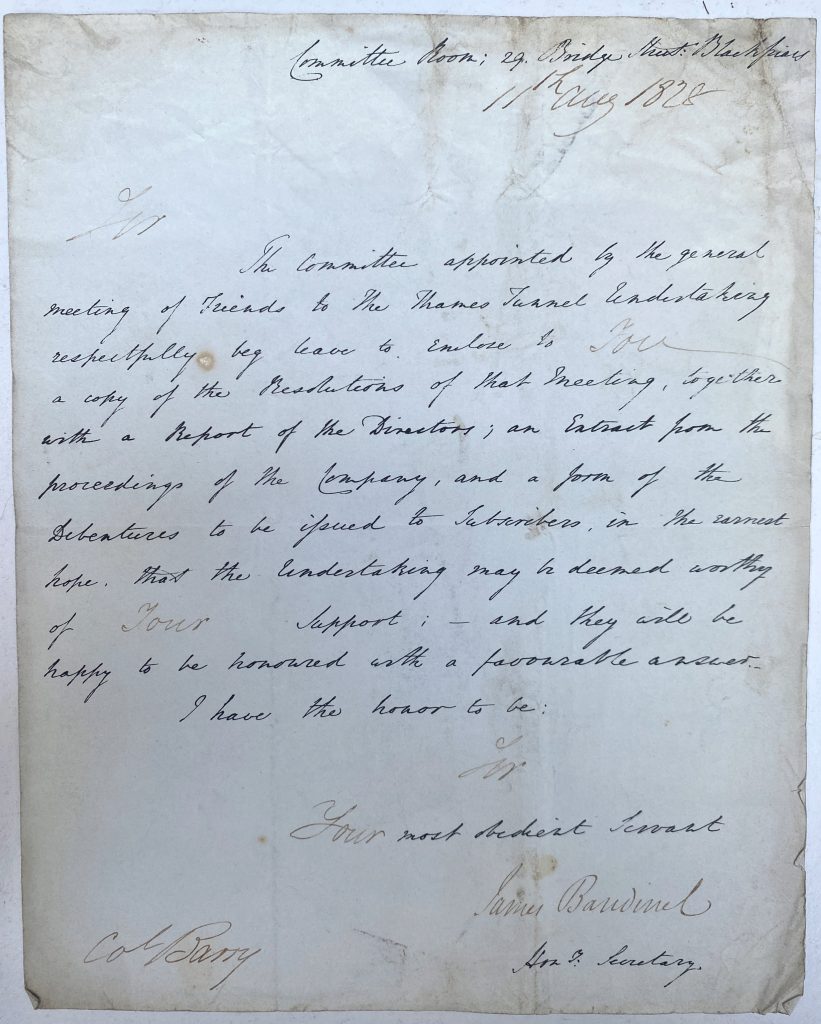 Committee Room; 29. Bridge Street Blackfriars
11th Aug 1828
Sir
The Committee appointed by the general
meeting of Friends to The Thames Tunnel Undertaking
respectfully beg leave to enclose to You
a copy of the Resolutions of that Meeting, together
with a Report of the Directors; an Extract from the
proceedings of the Company, and a form of the
Debentures to be issued to Subscribers, in the earnest
hope. that the Undertaking may be deemed worthy
of Your Support; — and they will be
happy to be honoured with a favourable answer.—
I have the honor to be:
Sir
Your most obedient Servant
James Bandinel
Hony. Secretary
Col Barry